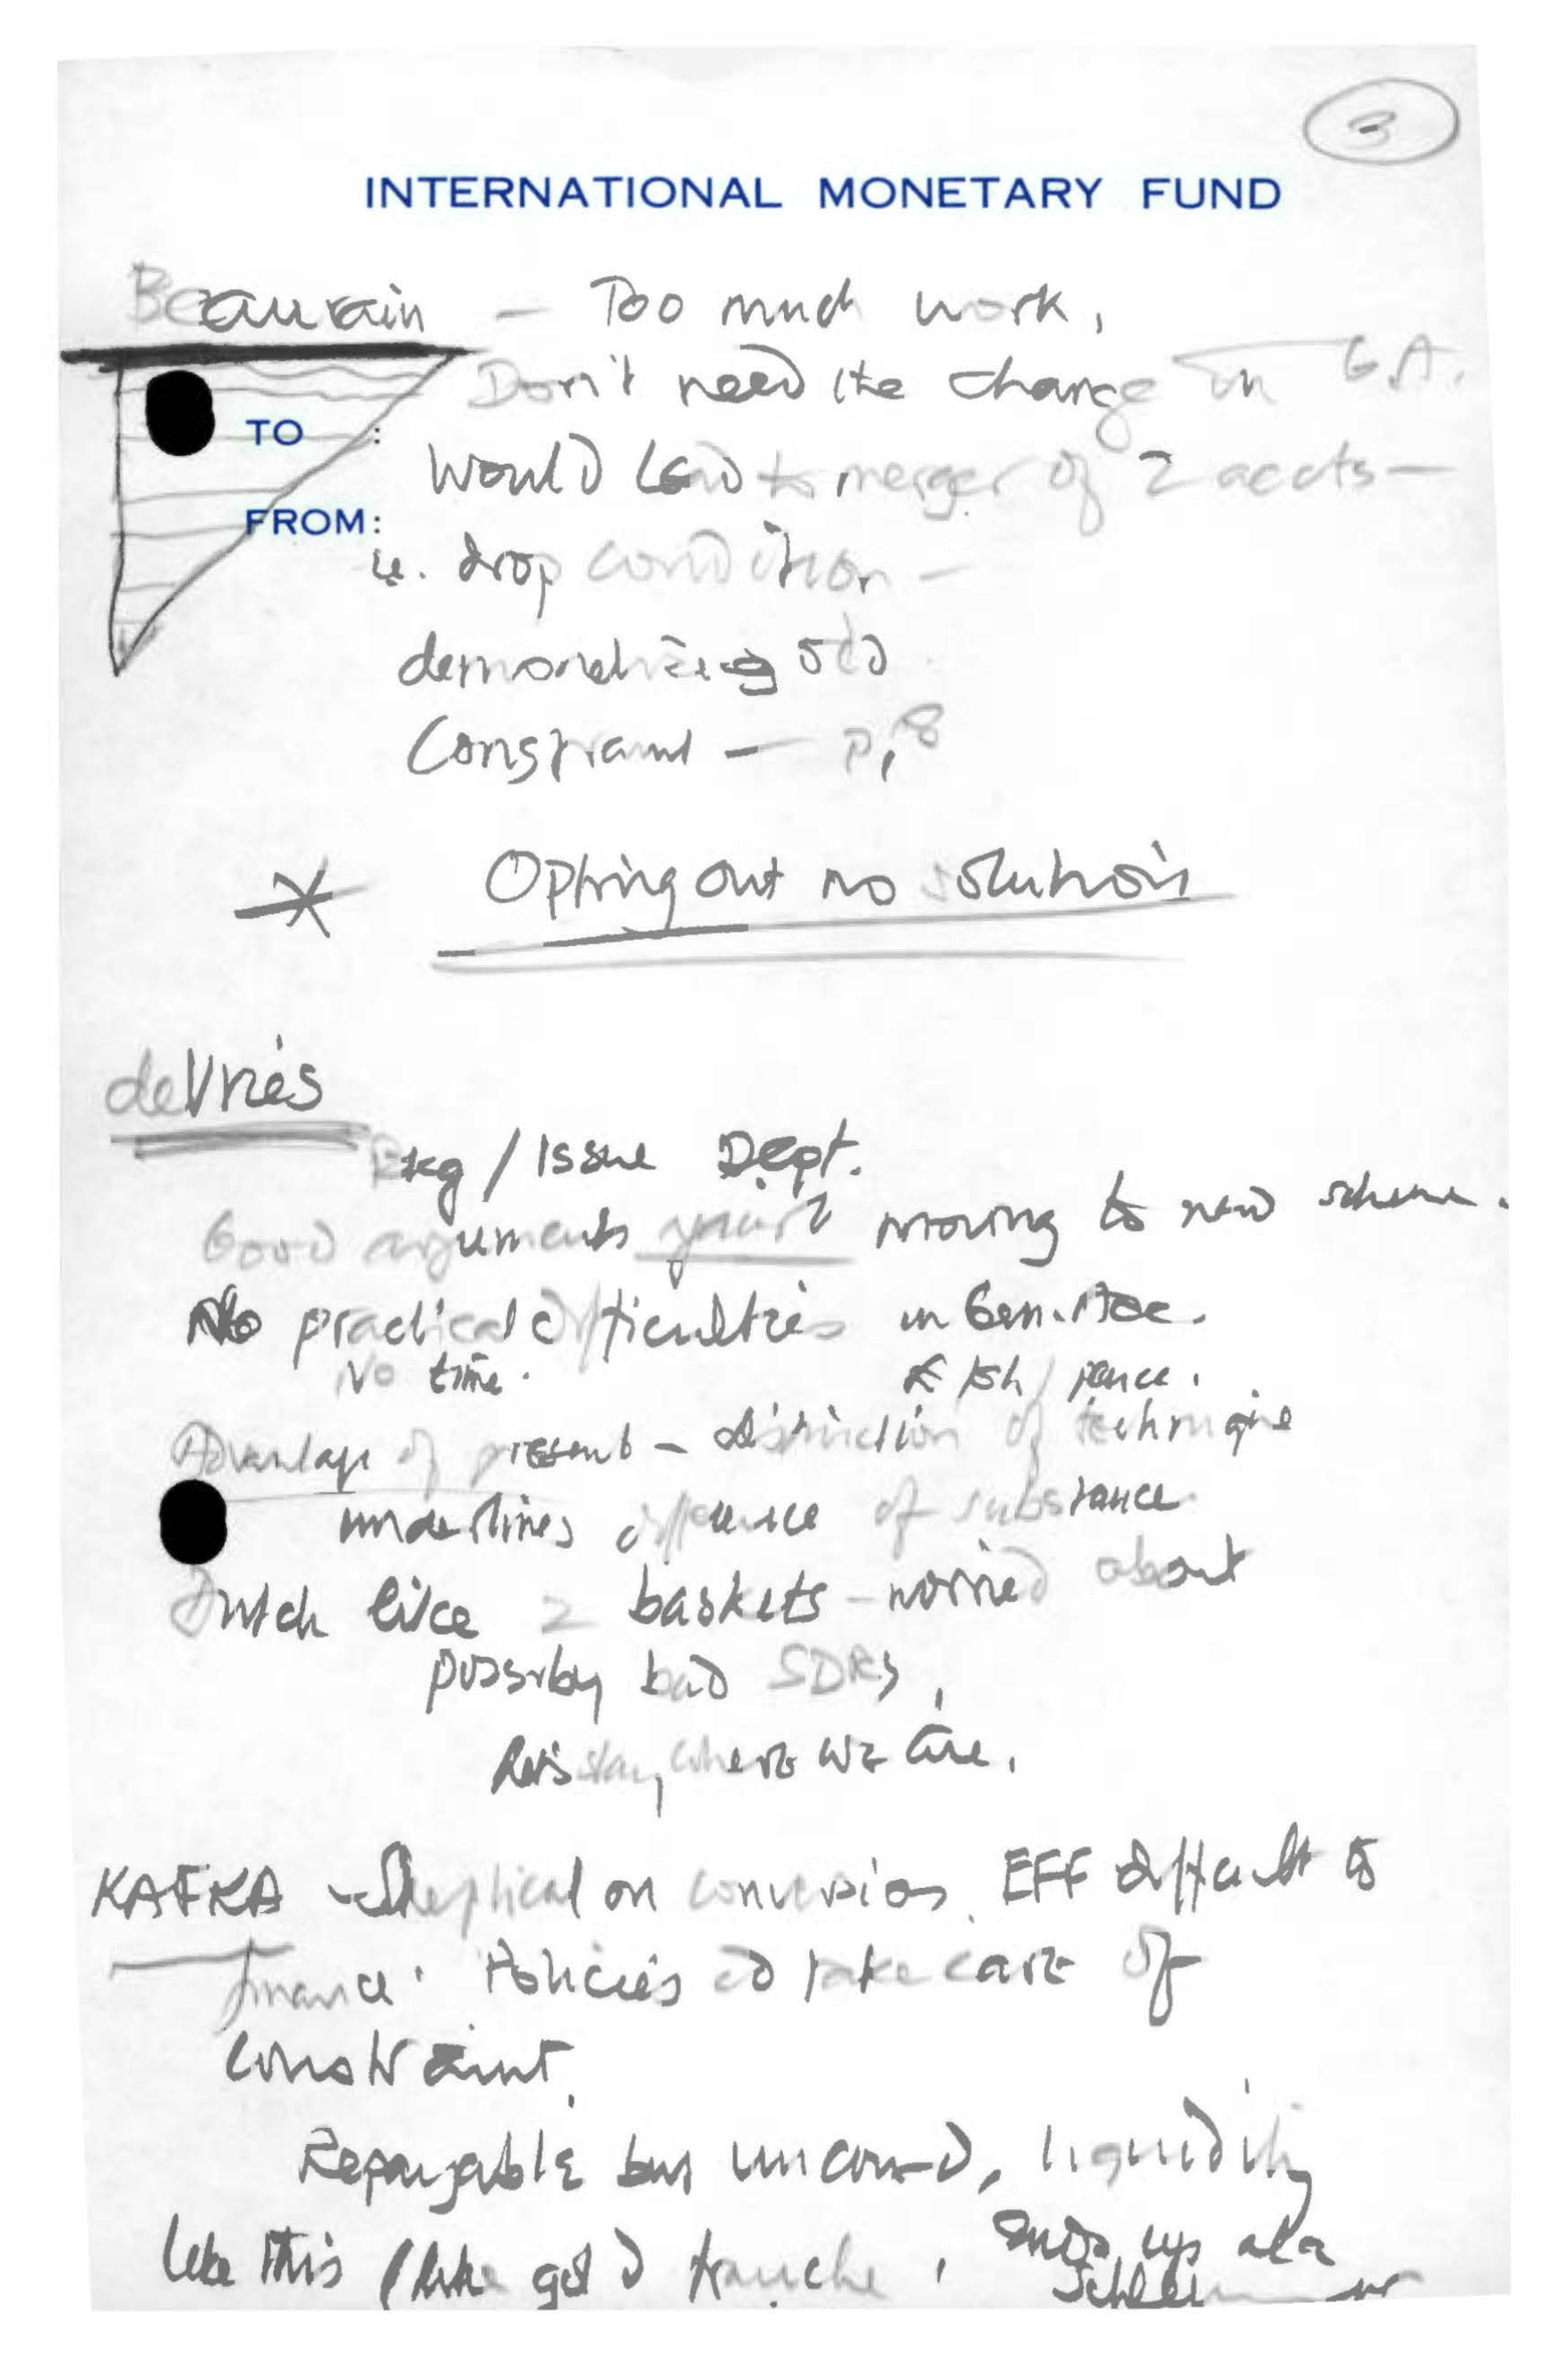 3
INTERNATIONAL MONETARY FUND
Beaurain — Too much work,
Don't need the change in G.A.
TO :
Would lead to merger of 2 accts —
FROM:
ie. drop condition —
old
Constraint — p, 8
* Opting out no solution
deVries
Bkg / Issue Dept.
Good arguments moving to new scheme.
No practical difficulties in Gen.
No time. £ /sh / pence.
Advantage of present — distinction of technique
underlines difference of substance
Dutch like 2 baskets — worried about
possibly bad SDRs,
let's stay where we are.
KAFKA — Skeptical on conversion. EFF difficult to
finance. Policies take care of
constraint.
Repayable but uncond, liquidity
like this (like gold tranche, ends up a la